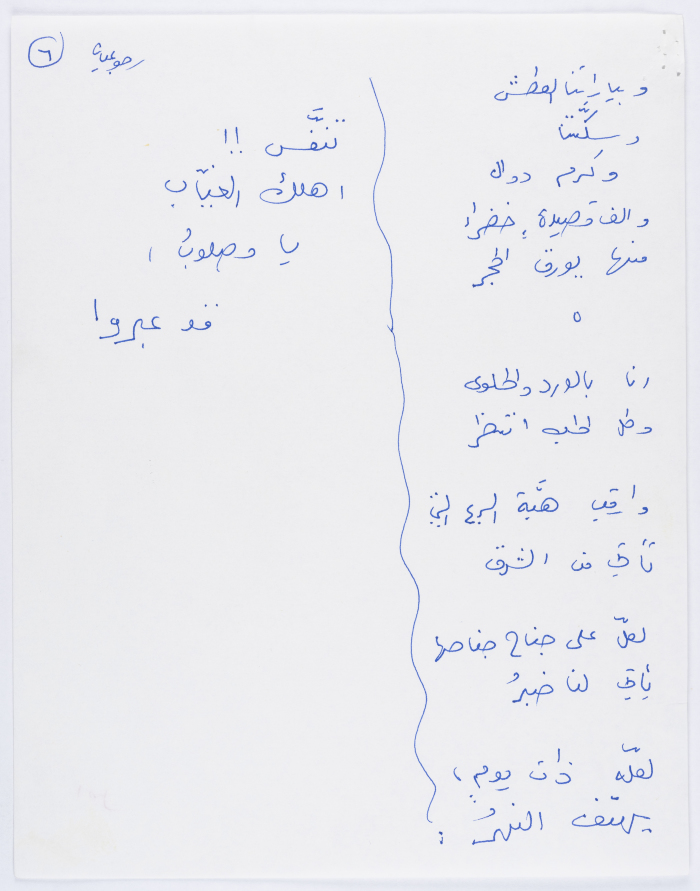 ٦
رجوعيات
وبياراتنا العطش
وسكَّتنا
وكرم دوال
والف قصيدةٍ خضراء
منها يورق الحجر
٥
انا بالورد والحلوى
وكل الحب انتظر
وارقب هبَّة الريح التي
تأتي من الشرق
لعلّ على جناح جناحها
يأتي لنا خبرُ
لعلّه ذات يومٍ ،
يهتف النهرُ :
تنفَّس !!
اهلك الغيّاب
يا مصلوبُ ،
قد عبروا